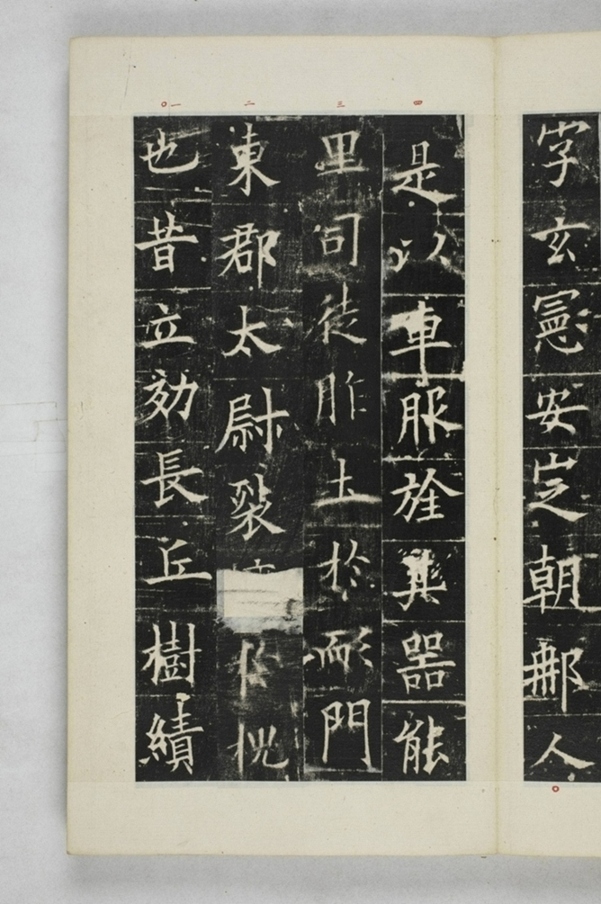 字玄憲安定朝那人
一
也昔立効長丘樹績
二
東郡太尉裂槐
三
里司徒胙土於耏門
四
是以車服旌其器能